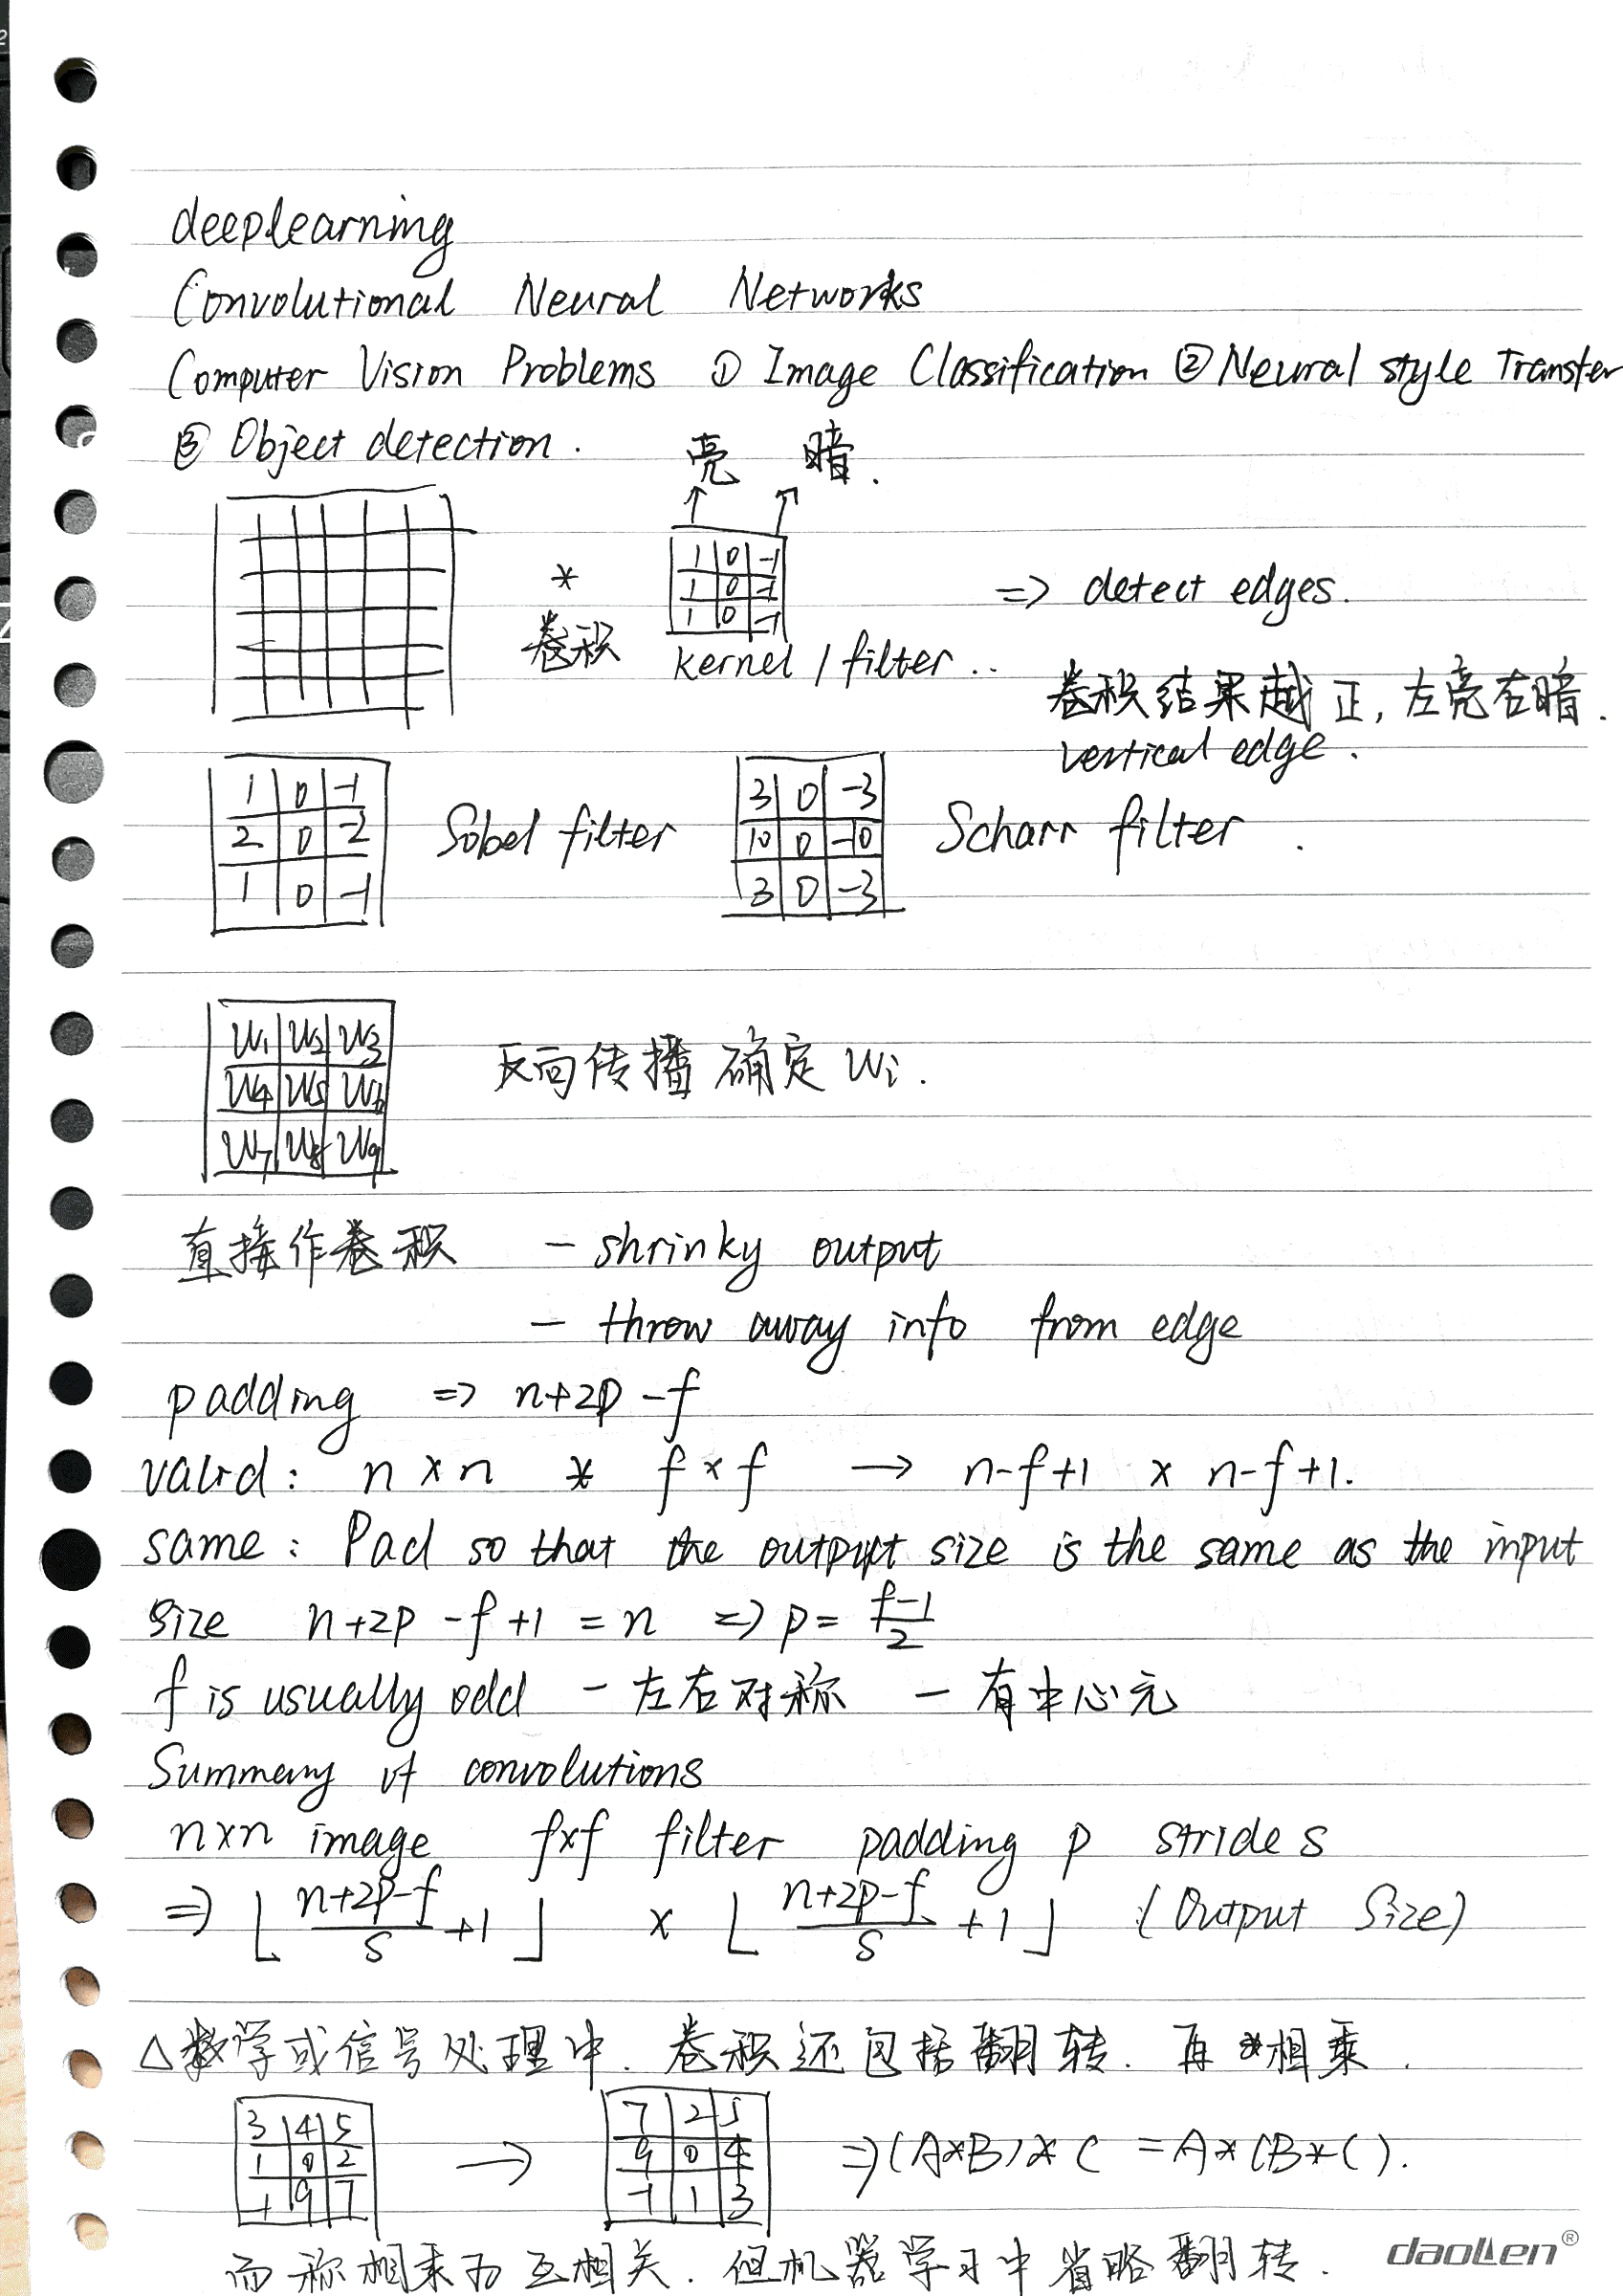 deeplearning
Convolutional Neural Networks
Computer Vision Problems ① Image Classification ② Neural style Transfer
③ Object detection.
亮 暗.
1 0 -1
1 0 -1
1 0 -1
*
卷积
kernel / filter..
=> detect edges.
卷积结果越正, 左亮右暗.
vertical edge.
1 0 -1
2 0 -2
1 0 -1
Sobel filter
3 0 -3
10 0 -10
3 0 -3
Scharr filter.
W1 W2 W3
W4 W5 W6
W7 W8 W9
反向传播 确定 Wi.
直接作卷积 - shrinky output
- throw away info from edge
padding => n+2p-f
valid: n×n * f×f → n-f+1 × n-f+1.
same: Pad so that the output size is the same as the input
size n+2p-f+1 = n => p = (f-1)/2
f is usually odd - 左右对称 - 有中心元
Summary of convolutions
n×n image f×f filter padding p stride s
=> ⌊(n+2p-f)/s + 1⌋ × ⌊(n+2p-f)/s + 1⌋ (Output Size)
△数学或信号处理中. 卷积还包括翻转. 再相乘.
3 4 5
1 0 2
-1 9 7
→
7 2 5
9 0 4
-1 1 3
=> (A*B)*C = A*(B*C).
而称相乘为互相关. 但机器学习中省略翻转.
daoLen®